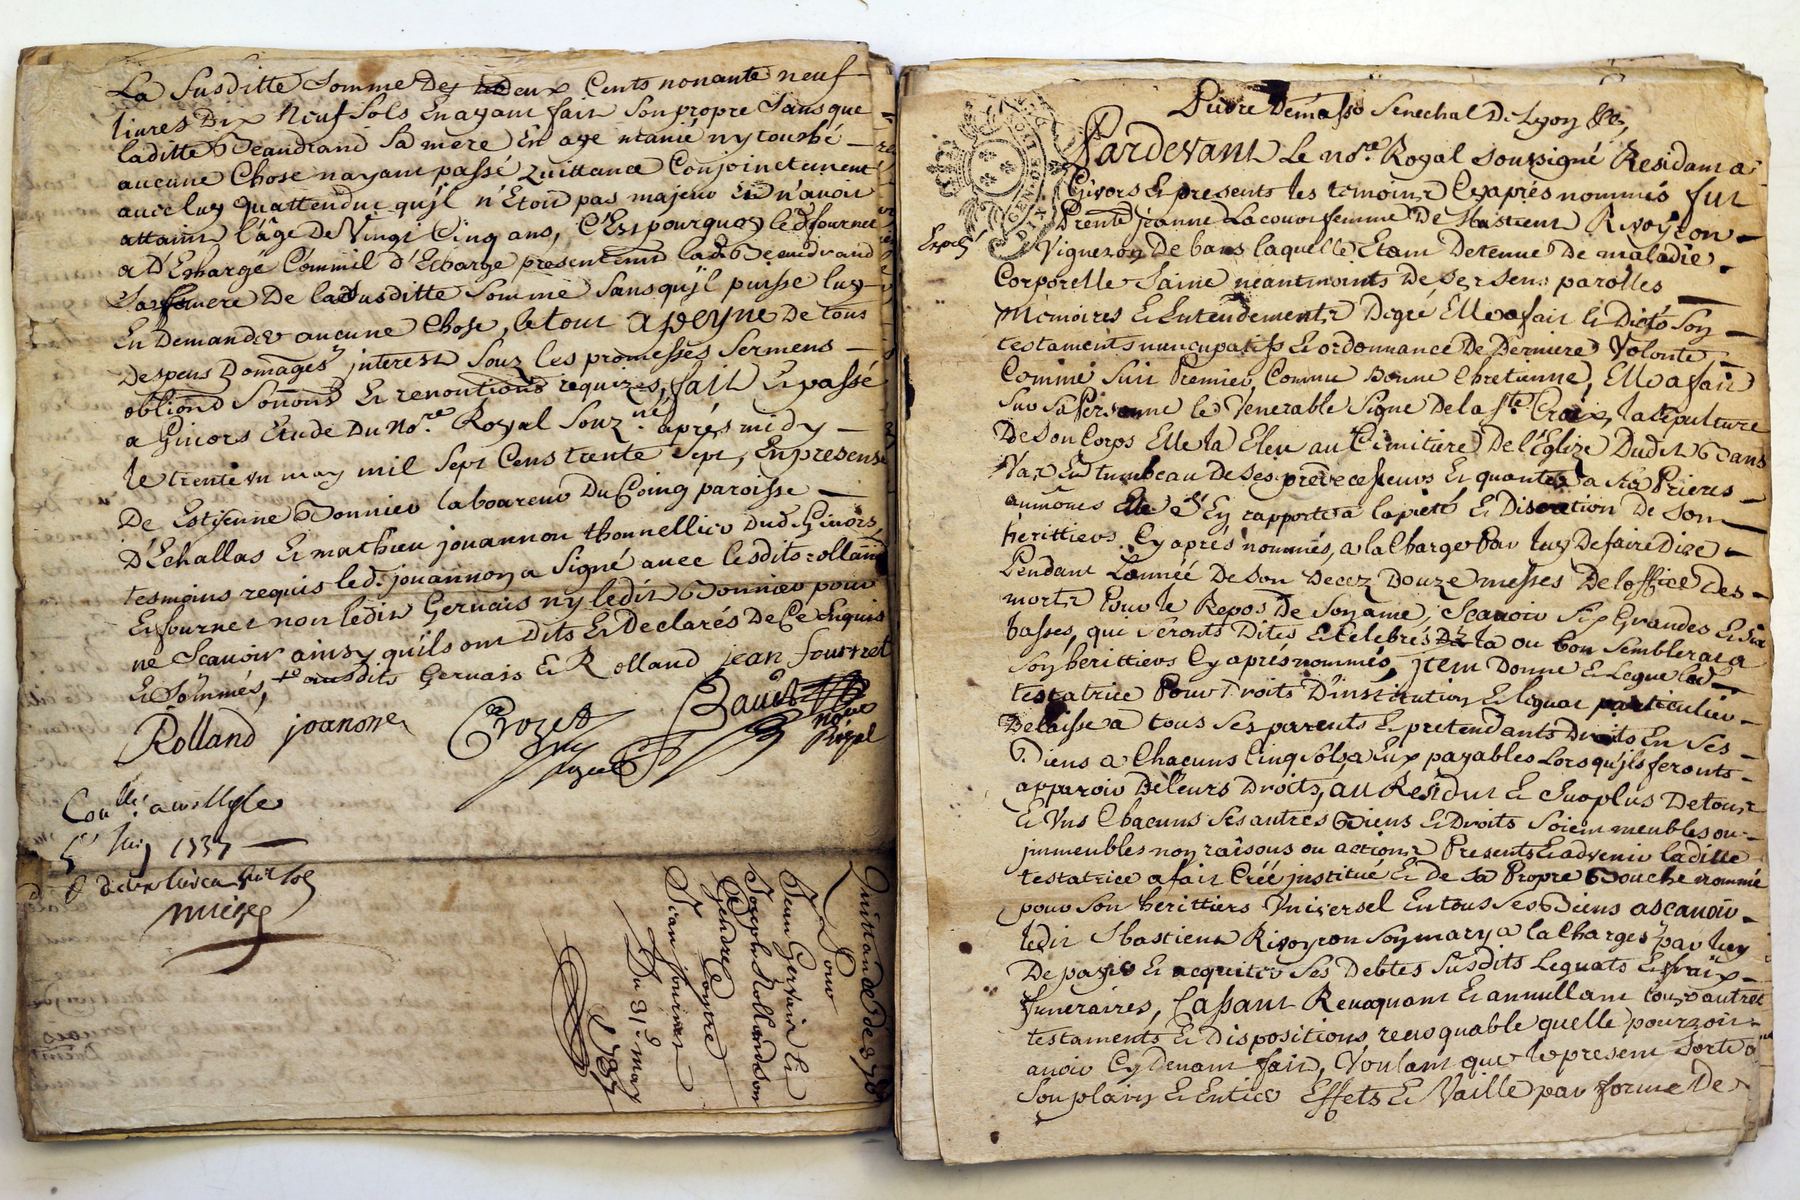 La Susditte Somme des deux Cents nonante neuf
livres Dix Neuf Sols En ayant fait Son propre Sans que
laditte Beaudrand Sa mere En aye ntamé ny touché
aucune Chose nayant passé quittance Conjoinctement
avec luy quattendut qu'jl n'Etoit pas majeur Et n'avoit
attaint l'âge De Vingt Cinq ans, C'Est pourquoy led fournet
a D'Echargé Comme il D'Echarge presentement lad Beaudrand
Sa mere De la Susditte Somme Sans qu'jl puisse luy
En Demander aucune Chose, le tout a peyne De tous
Despens Domages jnterest Souz les promesses Sermens
obliond Sonons Et renontions requizes, fait Et passé
a Givors Etude Du No.re Royal Souz.né aprés midy
le trente un may mil Sept Cens trente Sept, En presense
De Estienne Bonnier laboureur Du Coing paroisse
D'Echallas Et mathieu jouannon thonnellier dud Givors,
tesmoins requis led. jouannon a Signé avec lesdits rolland
Et fournet non ledit Gervais ny ledit Bonnier pour
ne Scavoir ainsy qu'ils ont Dits Et Declarés De Ce Enquis
Et Sommés, susdits Gervais Et Rolland jean fournet
Rolland joanone
Crozet
Bauet
no.re
Royal
Con.lle a
1737
Quittance De
Pour
Jean Gervais Et
Joseph Rolland son
Gendre Contre
Jean fournet
Du 31.e may
1737
Pierre Demasso Senechal De Lyon &c,
Pardevant Le no.re Royal Soussigné Residant a
Givors Et presents les temoins Cy aprés nommés fut
Presente Jeanne Lacour femme De Sbastient Rivoyron
Vigneron De bans laquelle Etant Detenue De maladie
Corporelle Saine neantmoints De Ses Sens parolles
Mémoires Et Entendements De gré Elle a fait Et Dicté Son
testaments nuncupatifs Et ordonnance De Derniere Volonté
Comme Suit Premier, Comme Bonne Chretienne, Elle a fait
Sur Sa Personne le Venerable Signe De la S.te Croix, la Sepulture
De Son Corps Elle la Eleu au Cimitiere De l'Eglize Dudit Bans
Et au tumbeau De Ses predecesseurs Et quant a Ses Prieres
aumônes Elle S'En rapporte a la pieté Et Discretion De Son
herittiers Cy aprés nommés, a la Charge Par luy De faire Dire
Pendant L'année De Son Decez Douze messes De l'office Des
morts Pour le Repos De Son ame, Scavoir Six Grandes Et Six
basses, qui Seronts Dites Et Celebrés la ou bon Semblerat a
Son herittiers Cy aprés nommés, jtem Donne Et legue lad
testatrice Pour Droits D'institution Et legat particulier
Delaisse a tous Ses parents Et pretendants Droits En Ses
Biens a Chacuns Cinq Sols a Eux payables Lorsqu'jls feronts
apparoir De leurs Droits, au Residut Et Surplus De tous
Et Uns Chacuns Ses autres Biens Et Droits Soient meubles ou
jmmeubles noms raisons ou actions Presents Et advenir laditte
testatrice a fait Créé institué Et De Sa Propre Bouche nommé
pour Son herittiers Universel En tous Ses Biens ascavoir
ledit Sbastient Rivoyron Son mary a la Charges par luy
De payer Et acquiter Ses Debtes Susdits Legats Et fraix
funeraires, Cassant Revoquant Et annullant tous autres
testaments Et Dispositions revoquable quelle pourroit
avoir Cy Devant fait, Voulant que le present Sorte
Son plain Et Entier Effets Et Vaille par forme De